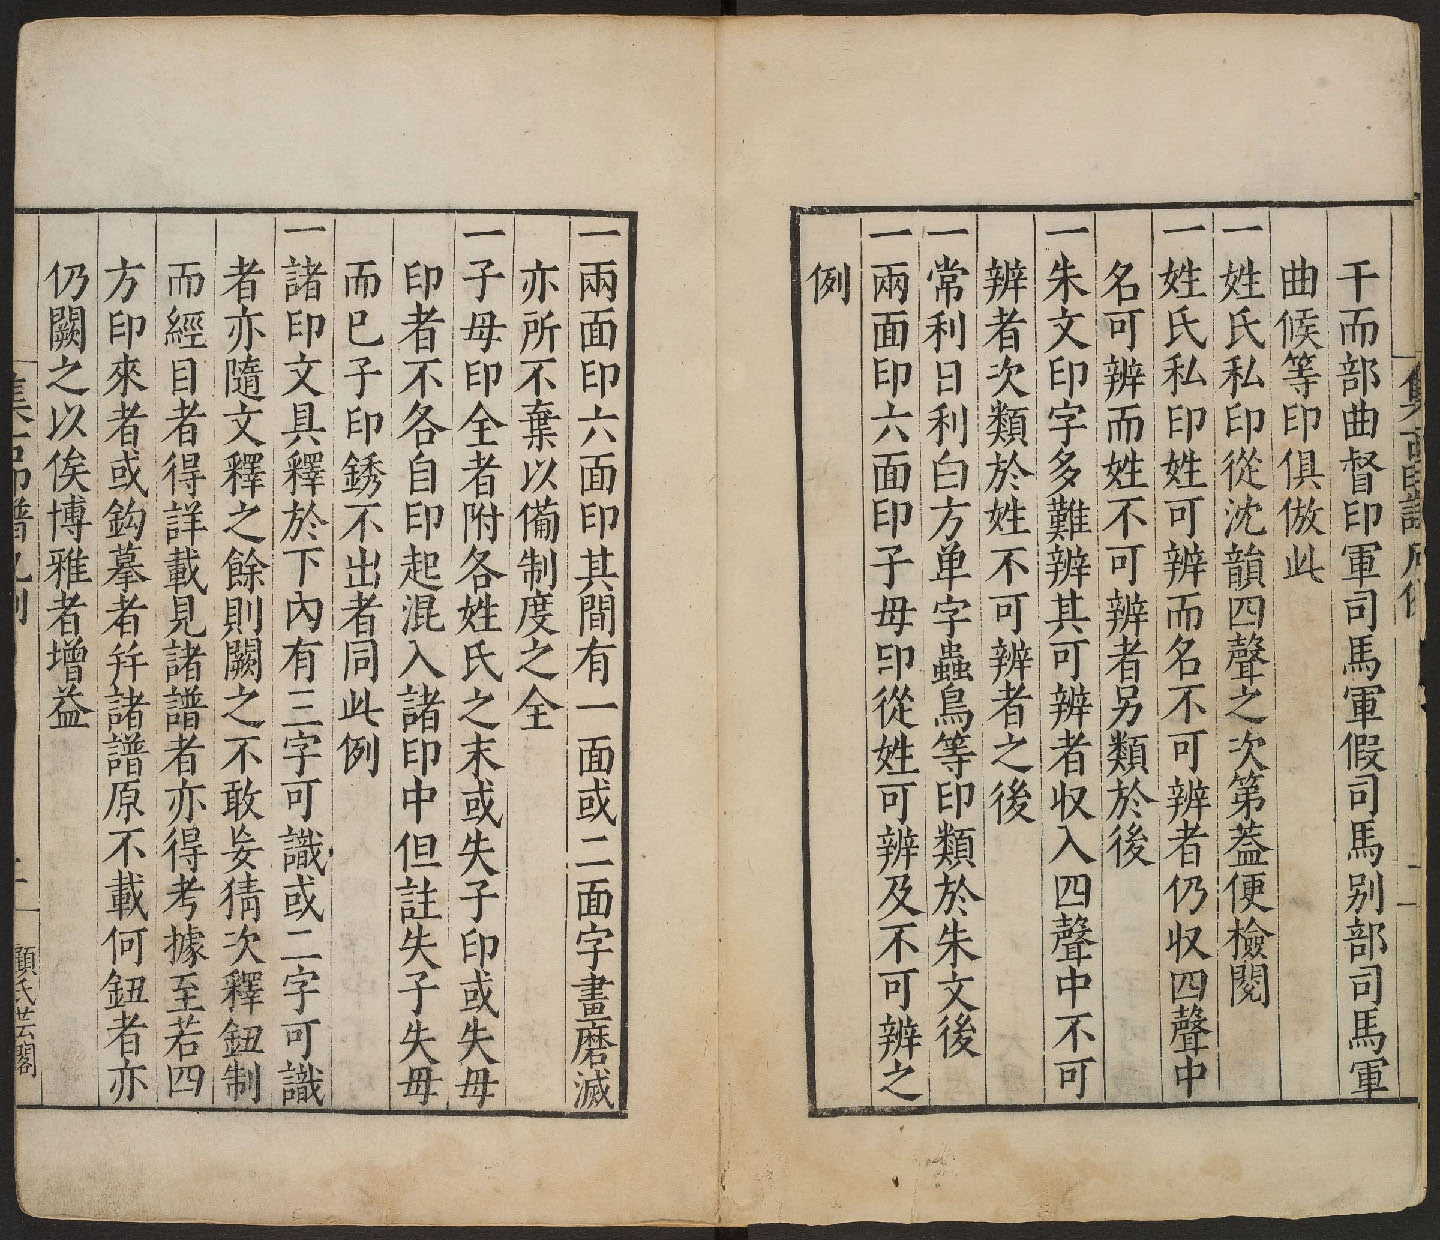 干而部曲督印軍司馬軍假司馬别部司馬軍
曲候等印俱倣此
一姓氏私印從沈韻四聲之次第蓋便檢閱
一姓氏私印姓可辨而名不可辨者仍收四聲中
名可辨而姓不可辨者另類於後
一朱文印字多難辨其可辨者收入四聲中不可
辨者次類於姓不可辨者之後
一常利日利白方单字蟲鳥等印類於朱文後
一兩面印六面印子母印從姓可辨及不可辨之
例
一兩面印六面印其間有一面或二面字畫磨滅
亦所不棄以備制度之全
一子母印全者附各姓氏之末或失子印或失母
印者不各自印起混入諸印中但註失子失母
而已子印銹不出者同此例
一諸印文具釋於下內有三字可識或二字可識
者亦隨文釋之餘則闕之不敢妄猜次釋鈕制
而經目者得詳載見諸譜者亦得考據至若四
方印來者或鈎摹者并諸譜原不載何鈕者亦
仍闕之以俟博雅者增益
顧氏芸閣